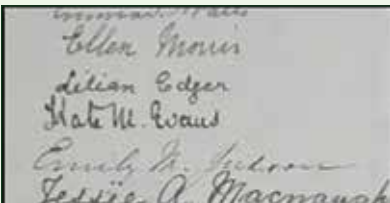 Ellen Morris
Lilian Edger
Kate M. Evans
Emily M.
Jessie A. Macnaugh